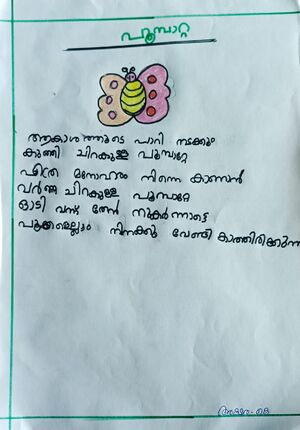 പൂമ്പാറ്റ
ആകാശത്തൂടെ പാറി നടക്കും
കുഞ്ഞി ചിറകുള്ള പൂമ്പാറ്റേ
എത്ര മനോഹരം നിന്നെ കാണാൻ
വർണ്ണ ചിറകുള്ള പൂമ്പാറ്റേ
ഓടി വന്ന് തേൻ നുകർന്നാട്ടെ
പൂക്കളെല്ലാം നിനക്കു വേണ്ടി കാത്തിരിക്കുന്ന